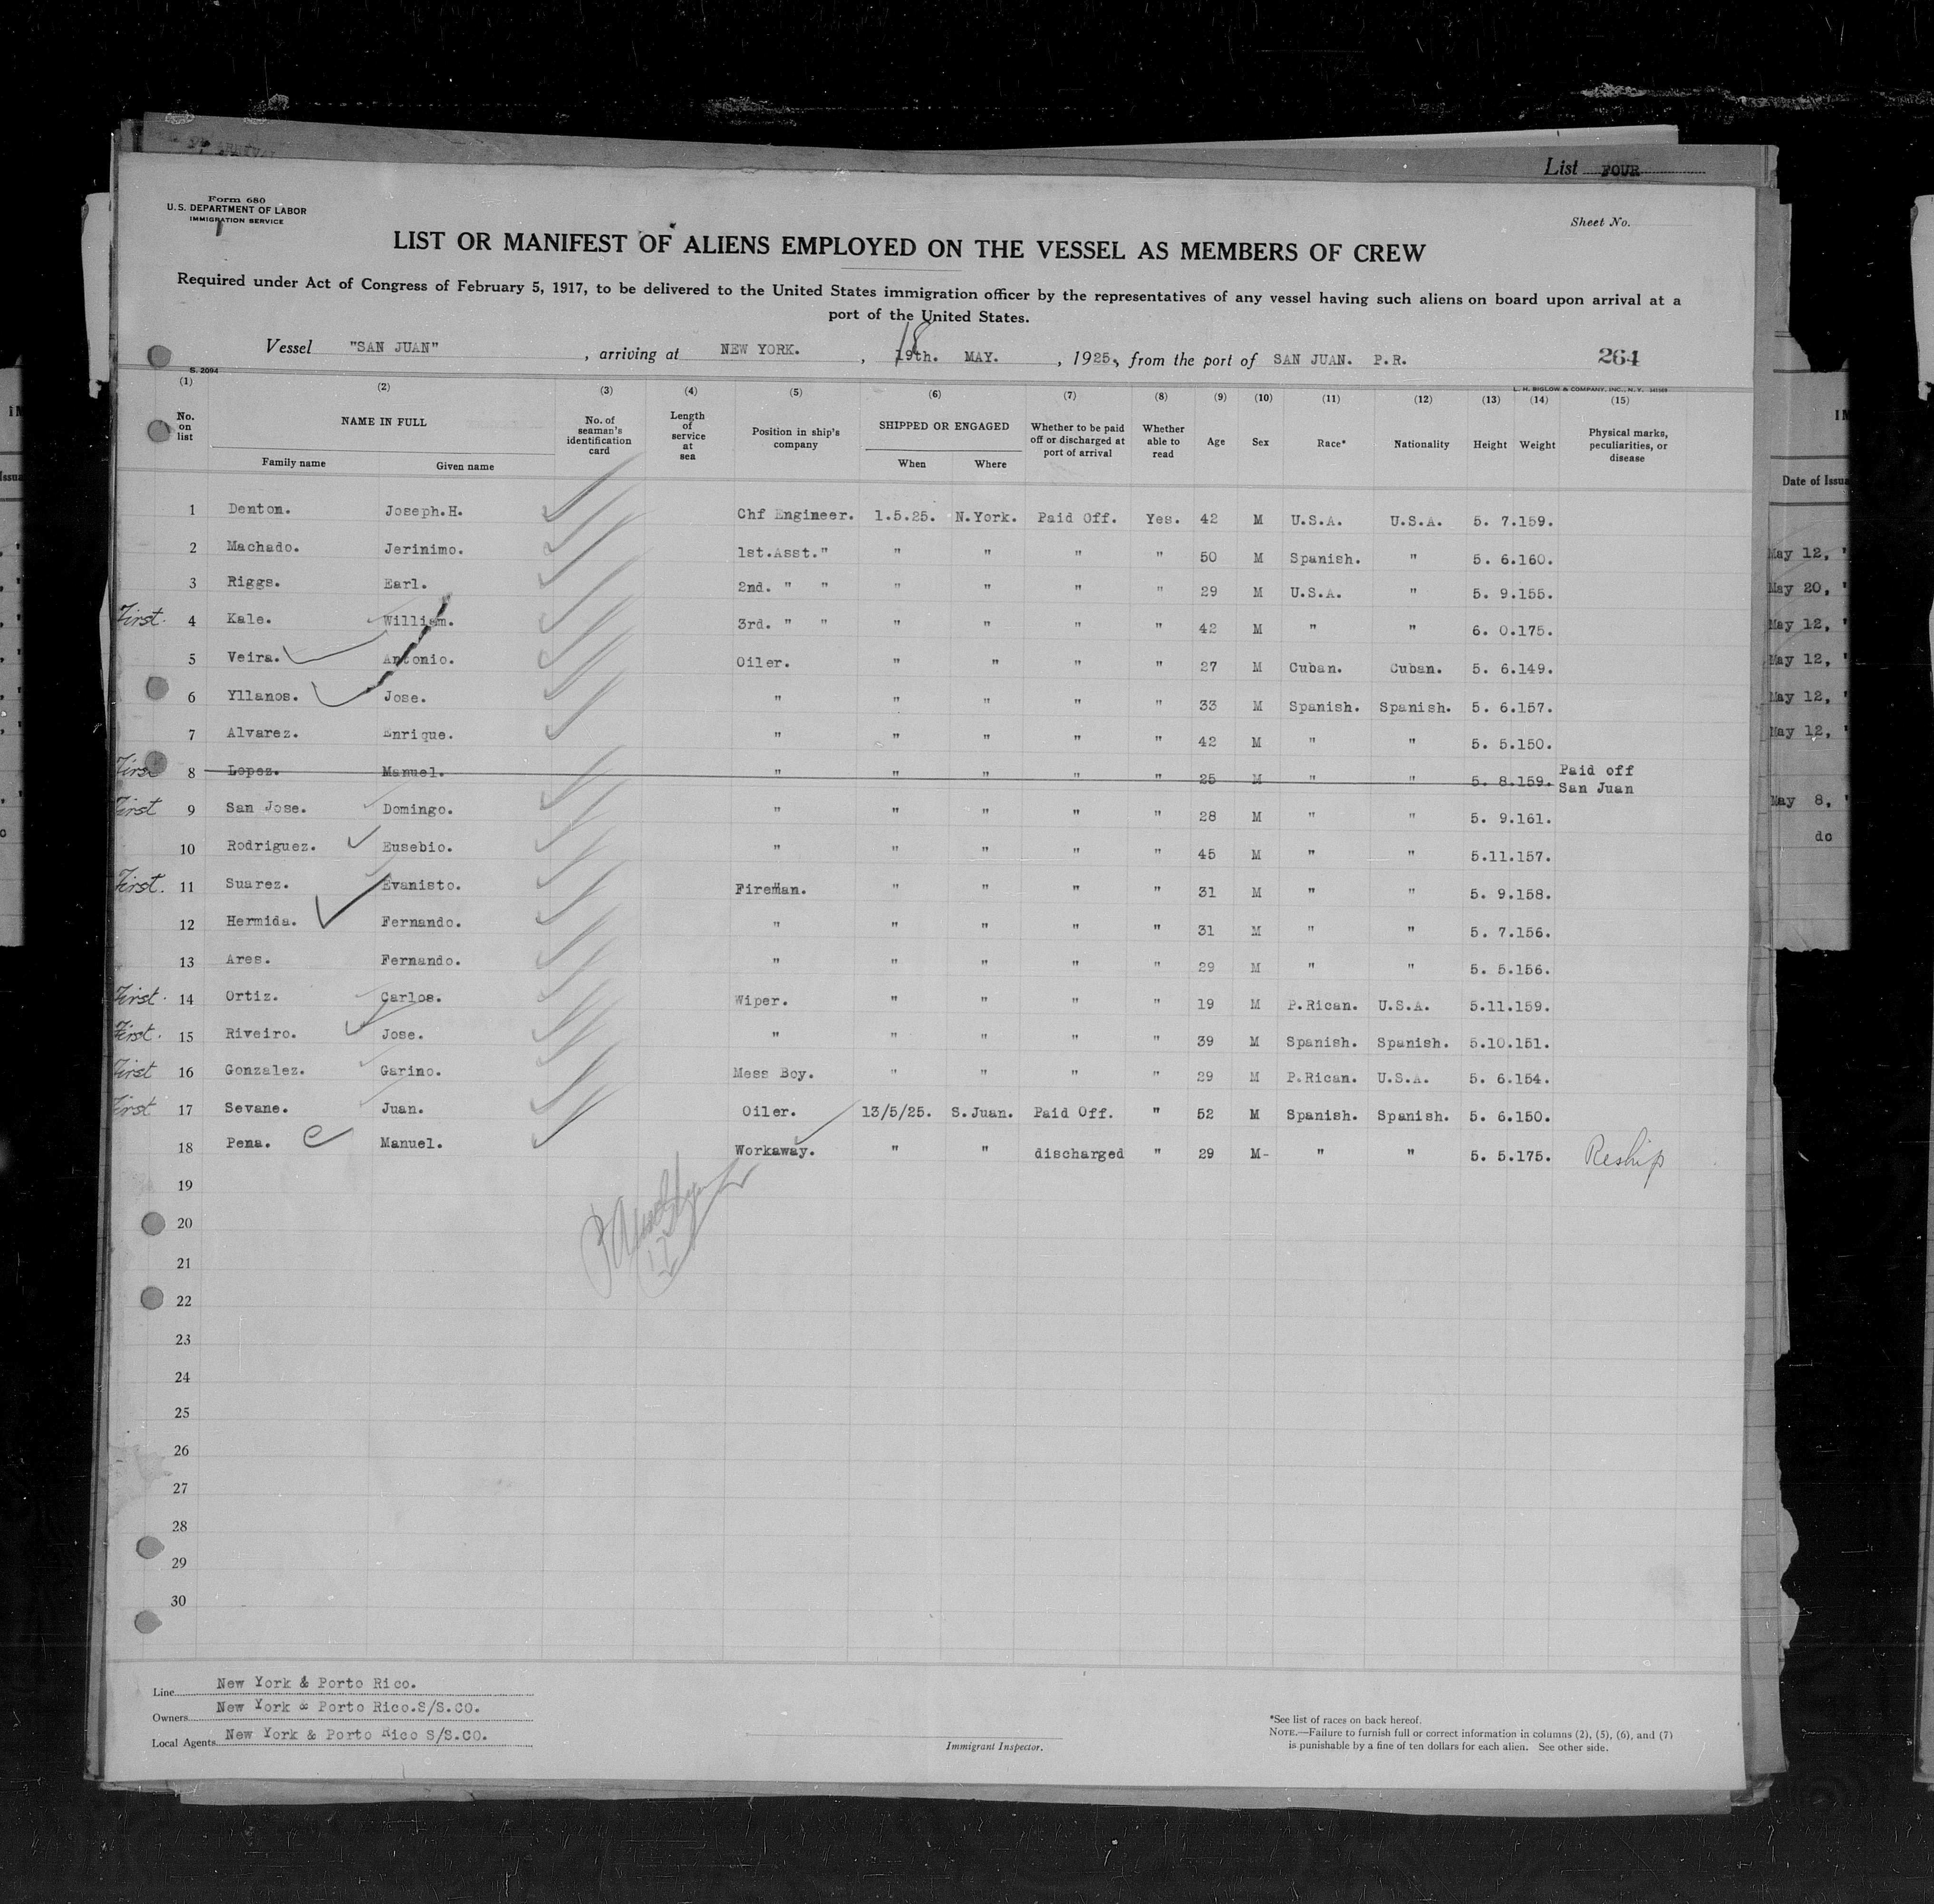 List FOUR
Form 680
U.S. DEPARTMENT OF LABOR
IMMIGRATION SERVICE
Sheet No.
LIST OR MANIFEST OF ALIENS EMPLOYED ON THE VESSEL AS MEMBERS OF CREW
Required under Act of Congress of February 5, 1917, to be delivered to the United States immigration officer by the representatives of any vessel having such aliens on board upon arrival at a
port of the United States.
18
Vessel "SAN JUAN" , arriving at NEW YORK. , 19th. MAY. , 1925, from the port of SAN JUAN. P.R. 264
S. 2094
L. H. BIGLOW & COMPANY, INC., N.Y.
(1) (2) (3) (4) (5) (6) (7) (8) (9) (10) (11) (12) (13) (14) (15)
No. on list NAME IN FULL Family name Given name No. of seaman's identification card Length of service at sea Position in ship's company SHIPPED OR ENGAGED When Where Whether to be paid off or discharged at port of arrival Whether able to read Age Sex Race* Nationality Height Weight Physical marks, peculiarities, or disease
1 Denton. Joseph.H. Chf Engineer. 1.5.25. N.York. Paid Off. Yes. 42 M U.S.A. U.S.A. 5. 7.159.
2 Machado. Jerinimo. 1st.Asst." " " " " 50 M Spanish. " 5. 6.160.
3 Riggs. Earl. 2nd. " " " " " " 29 M U.S.A. " 5. 9.155.
First. 4 Kale. William. 3rd. " " " " " " 42 M " " 6. 0.175.
5 Veira. Antonio. Oiler. " " " " 27 M Cuban. Cuban. 5. 6.149.
6 Yllanos. Jose. " " " " " 33 M Spanish. Spanish. 5. 6.157.
7 Alvarez. Enrique. " " " " " 42 M " " 5. 5.150.
First 8 Lopez. Manuel. " " " " " 25 M " " 5. 8.159. Paid off San Juan
First 9 San Jose. Domingo. " " " " " 28 M " " 5. 9.161.
10 Rodriguez. Eusebio. " " " " " 45 M " " 5.11.157.
First. 11 Suarez. Evanisto. Fireman. " " " " 31 M " " 5. 9.158.
12 Hermida. Fernando. " " " " " 31 M " " 5. 7.156.
13 Ares. Fernando. " " " " " 29 M " " 5. 5.156.
First. 14 Ortiz. Carlos. Wiper. " " " " 19 M P.Rican. U.S.A. 5.11.159.
First. 15 Riveiro. Jose. " " " " " 39 M Spanish. Spanish. 5.10.151.
First 16 Gonzalez. Garino. Mess Boy. " " " " 29 M P.Rican. U.S.A. 5. 6.154.
First 17 Sevane. Juan. Oiler. 13/5/25. S.Juan. Paid Off. " 52 M Spanish. Spanish. 5. 6.150.
18 Pena. Manuel. Workaway. " " discharged " 29 M- " " 5. 5.175. Reship
19
20
21
22
23
24
25
26
27
28
29
30
Line New York & Porto Rico.
Owners New York & Porto Rico.S/S.CO.
Local Agents New York & Porto Rico S/S.CO.
Immigrant Inspector.
*See list of races on back hereof.
NOTE.—Failure to furnish full or correct information in columns (2), (5), (6), and (7)
is punishable by a fine of ten dollars for each alien. See other side.
Date of Issu
May 12, "
May 20, "
May 12, "
May 12, "
May 12, "
May 12, "
May 8, "
do